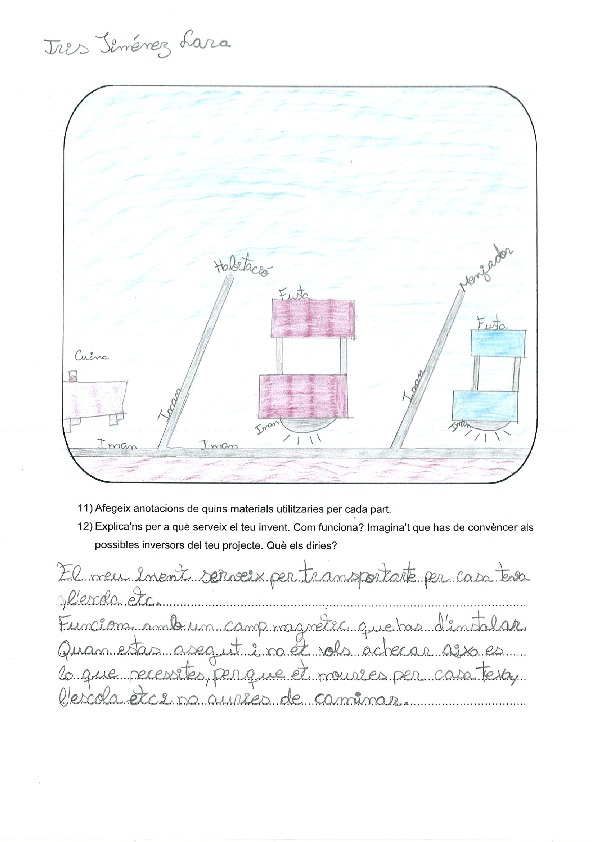 Ires Jiménez Lara
Habitació
Menjador
Fusta
Fusta
Cuina
Iman
Iman
Iman
Iman
Iman
Iman
11) Afegeix anotacions de quins materials utilitzaries per cada part.
12) Explica'ns per a què serveix el teu invent. Com funciona? Imagina't que has de convèncer als
possibles inversors del teu projecte. Què els diries?
El meu invent serveix per transportarte per casa teva
,l'escola etc.
Funciona amb un camp magnètic que has d'instalar.
Quan estas asegut i no et vols achecar aixo es
lo que necesites, per que et mouries per casa teva,
l'escola etc i no auries de caminar.